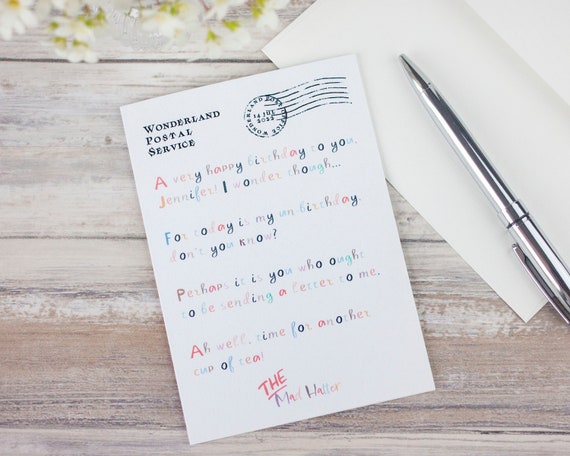 WONDERLAND
POSTAL
SERVICE
WONDERLAND POST OFFICE
14 JUL
2022
A very happy birthday to you,
Jennifer! I wonder though...
For today is my un-birthday,
don't you know?
Perhaps it is you who ought
to be sending a letter to me.
Ah well, time for another
cup of tea!
THE
Mad Hatter